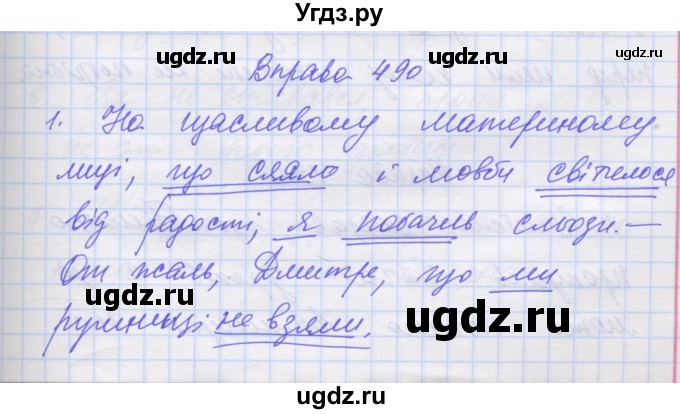 Угдз.ру
Вправа 490
1. На щасливому материному
лиці, що сяяло і мовби світилося
від радості, я побачив сльози. —
От жаль, Дмитре, що ми
рушниці не взяли.
ugdz.ru ugdz.ru ugdz.ru
ugdz.ru ugdz.ru ugdz.ru
ugdz.ru ugdz.ru ugdz.ru
ugdz.ru